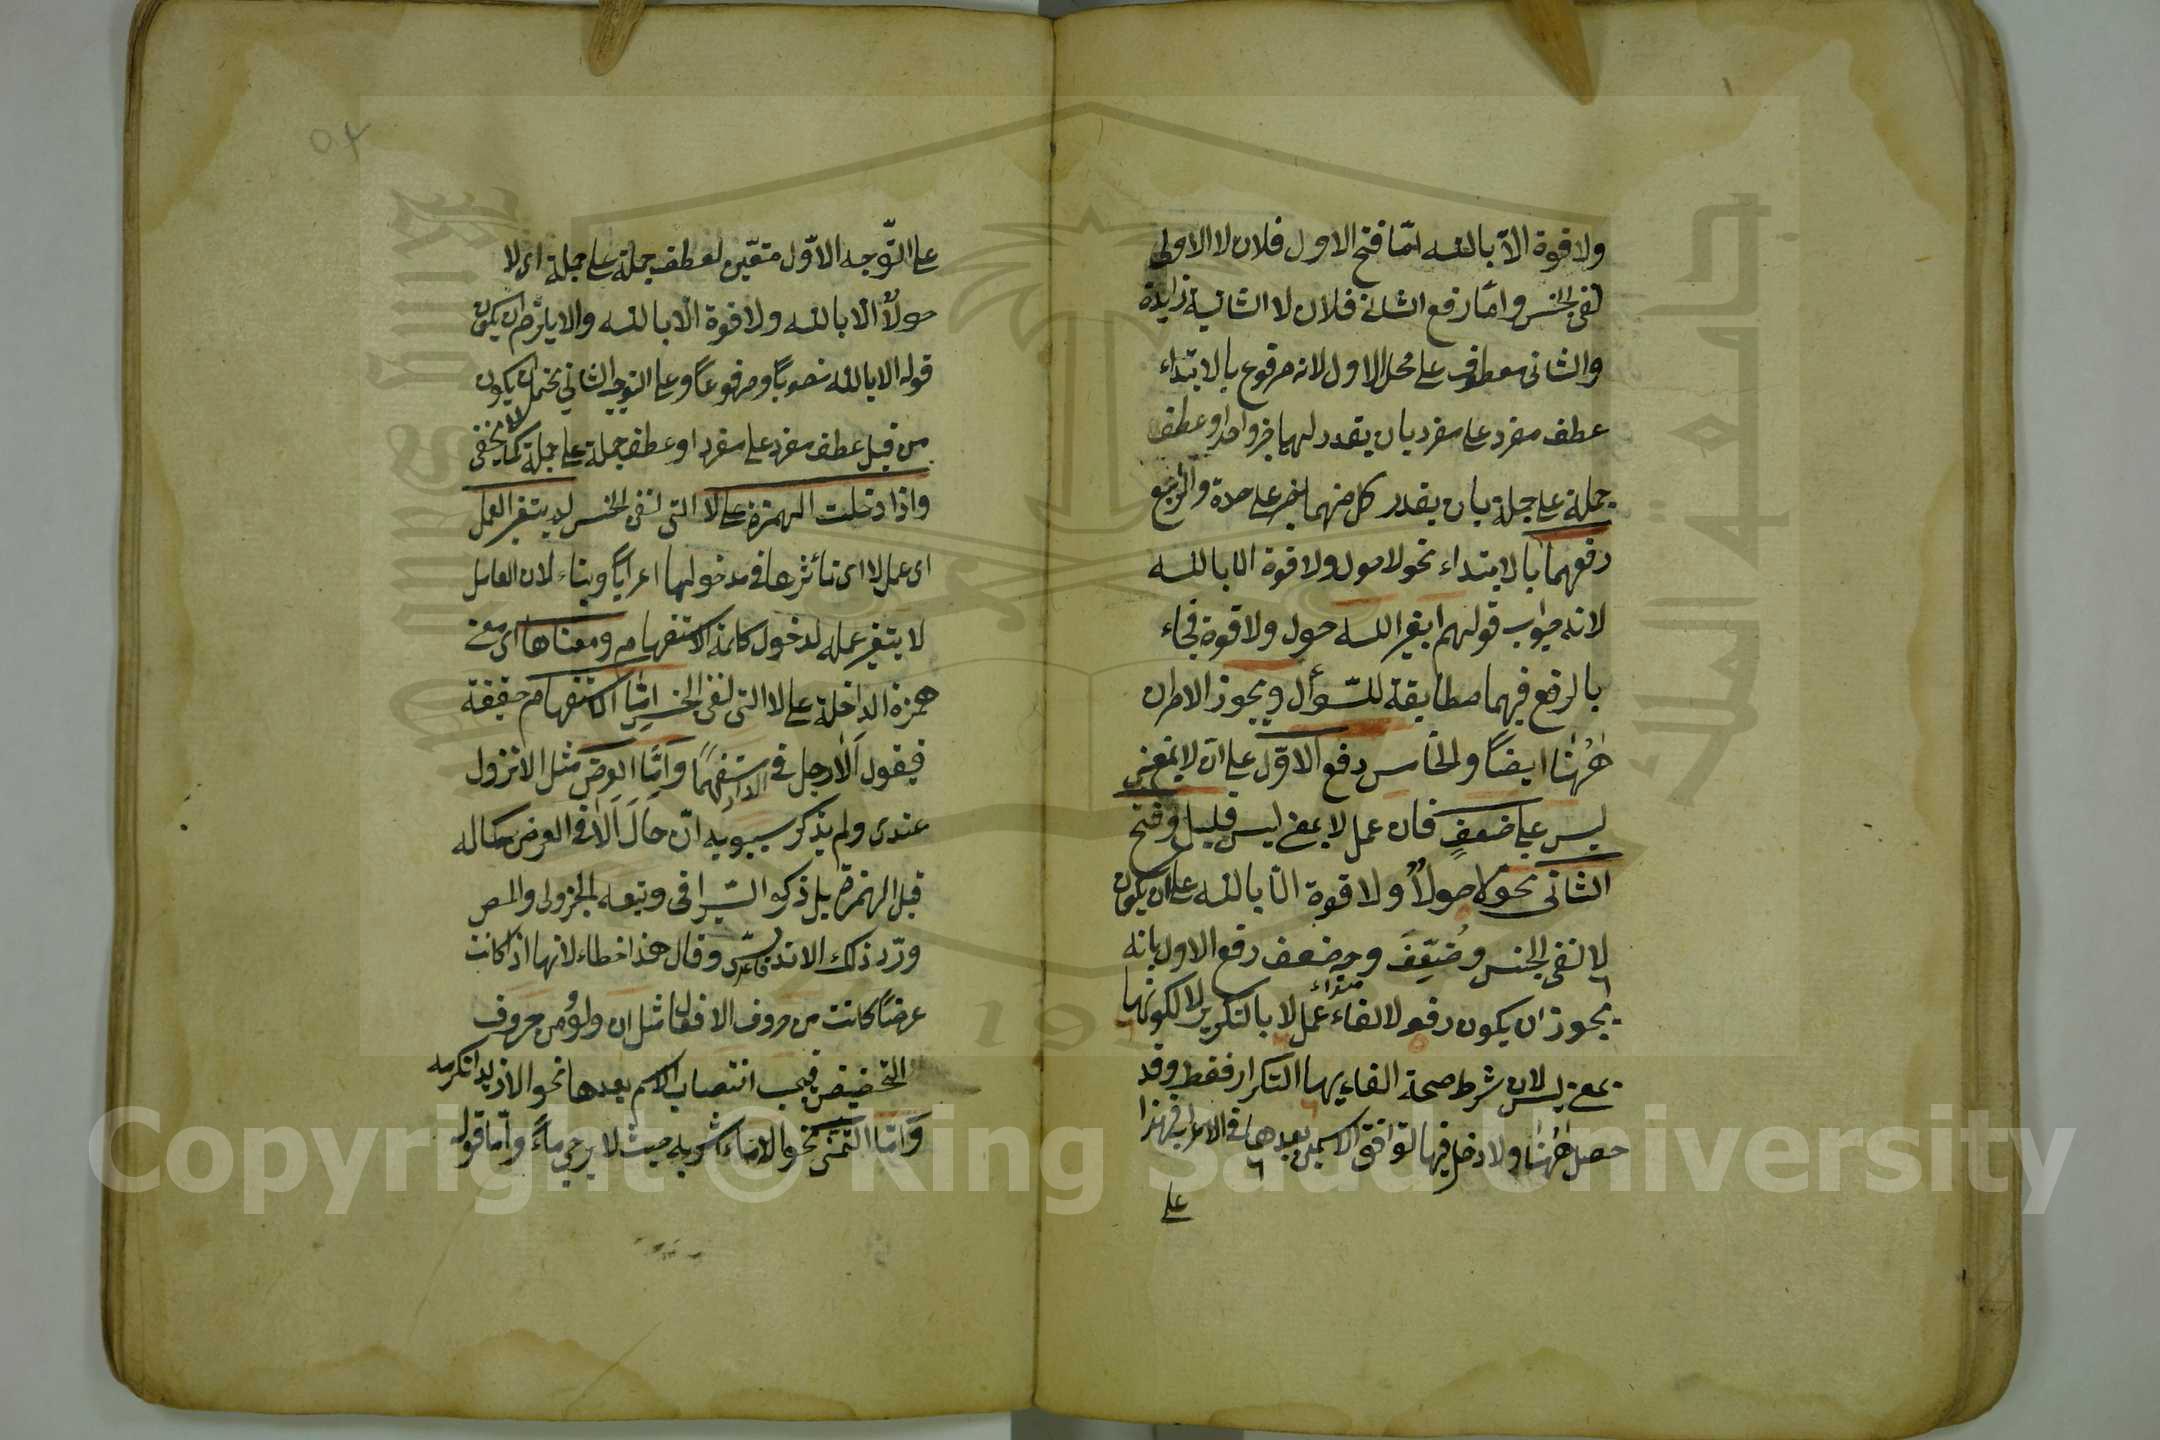 ولا قوة الا بالله امّا فتح الاول فلان لا الاولى
لنفى الجنس وامّا رفع الثانى فلان لا الثانية زايدة
والثانى معطوف على محل الاول لانه مرفوع بالابتداء
عطف مفرد على مفرد بان يقدر لهما خبر واحد او عطف
جملة على جملة بان يقدر كل منهما خبر على حدة والرابع
رفعهما بالابتداء نحو لا حول ولا قوة الا بالله
لانه جواب قولهم ابغير الله حول ولا قوة فجاء
بالرفع فيهما مطابقة للسّؤال ويجوز الامران
هٰهُنا ايضاً والخامس رفع الاوّل على ان لا بمعنى
ليس على ضعفٍ فان عمل لا بمعنى ليس قليل وفتح
الثانى نحو لا حولٌ ولا قوة الّا بالله على ان يكون
لا لنفى الجنس وضُعِّفَ وجه ضعف رفع الاول بانه
يجوز ان يكون رفعه لالغاء عمل لا بالتكرير لا لكونها
بمعنى ليس لان شرط صحة الغايها التكرار فقط وقد
حصل هٰهُنا ولا دخل فيها لتوافق الاسمين بعدها فى الاعراب فهذا
على
٥٢
على التّوجه الاوّل متعّين لعطف جملة على جملة اى لا
حولٌ الا بالله ولا قوة الا بالله والا يلزم ان يكون
قوله الا بالله منصوباً ومرفوعاً وعلى التوجيه الثانى يحتمل ان يكون
من قبيل عطف مفرد على مفرد او عطف جملة على جملة كما لا يخفى
واذا دخلت الهمزة على لا التى لنفى الجنس لم يتغير العمل
اى عمل لا اى تأثرها فى مدخولها اعراباً وبناء لان العامل
لا يتغير عمله لدخول كلمة الاستفهام ومعناها اى معنى
همزة الداخلة على لا التى لنفى الجنس امّا الاستفهام حقيقة
فيقول اَلا رجل فى الدار مستفهماً وامّا العرض مثل الا تنزول
عندى ولم يذكر سيبويه انّ حال اَلا فى العرض كحاله
قبل الهمزة بل ذكره السّيرافى وتبعه الجزولى والمص
وردّ ذلك الاندلسى وقال هذا خطاء لانها اذا كانت
عرضاً كانت من حروف الافعال مثل ان ولو ومن حروف
التحضيض فيجب انتصاب الاسم بعدها نحو الا زيدا تكرمه
وَامّا التمنّى نحو الا ماء اشربه حيث لا يرجى ماءً وامّا قوله